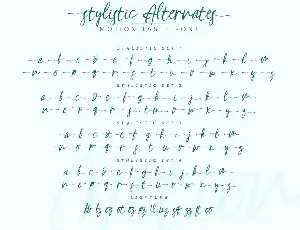 stylistic Alternates
MOTION LAST FONT
STYLISTIC SET 1
a b c d e f g h i j k l m
n o p q r s t u v w x y z
STYLISTIC SET 2
a b c d e f g h i j k l m
n o p q r s t u v w x y z
STYLISTIC SET 3
a b c d e f g h i j k l m
n o p q r s t u v w x y z
STYLISTIC SET 4
a b c d e f g h i j k l m
n o p q r s t u v w x y z
LIGATURE